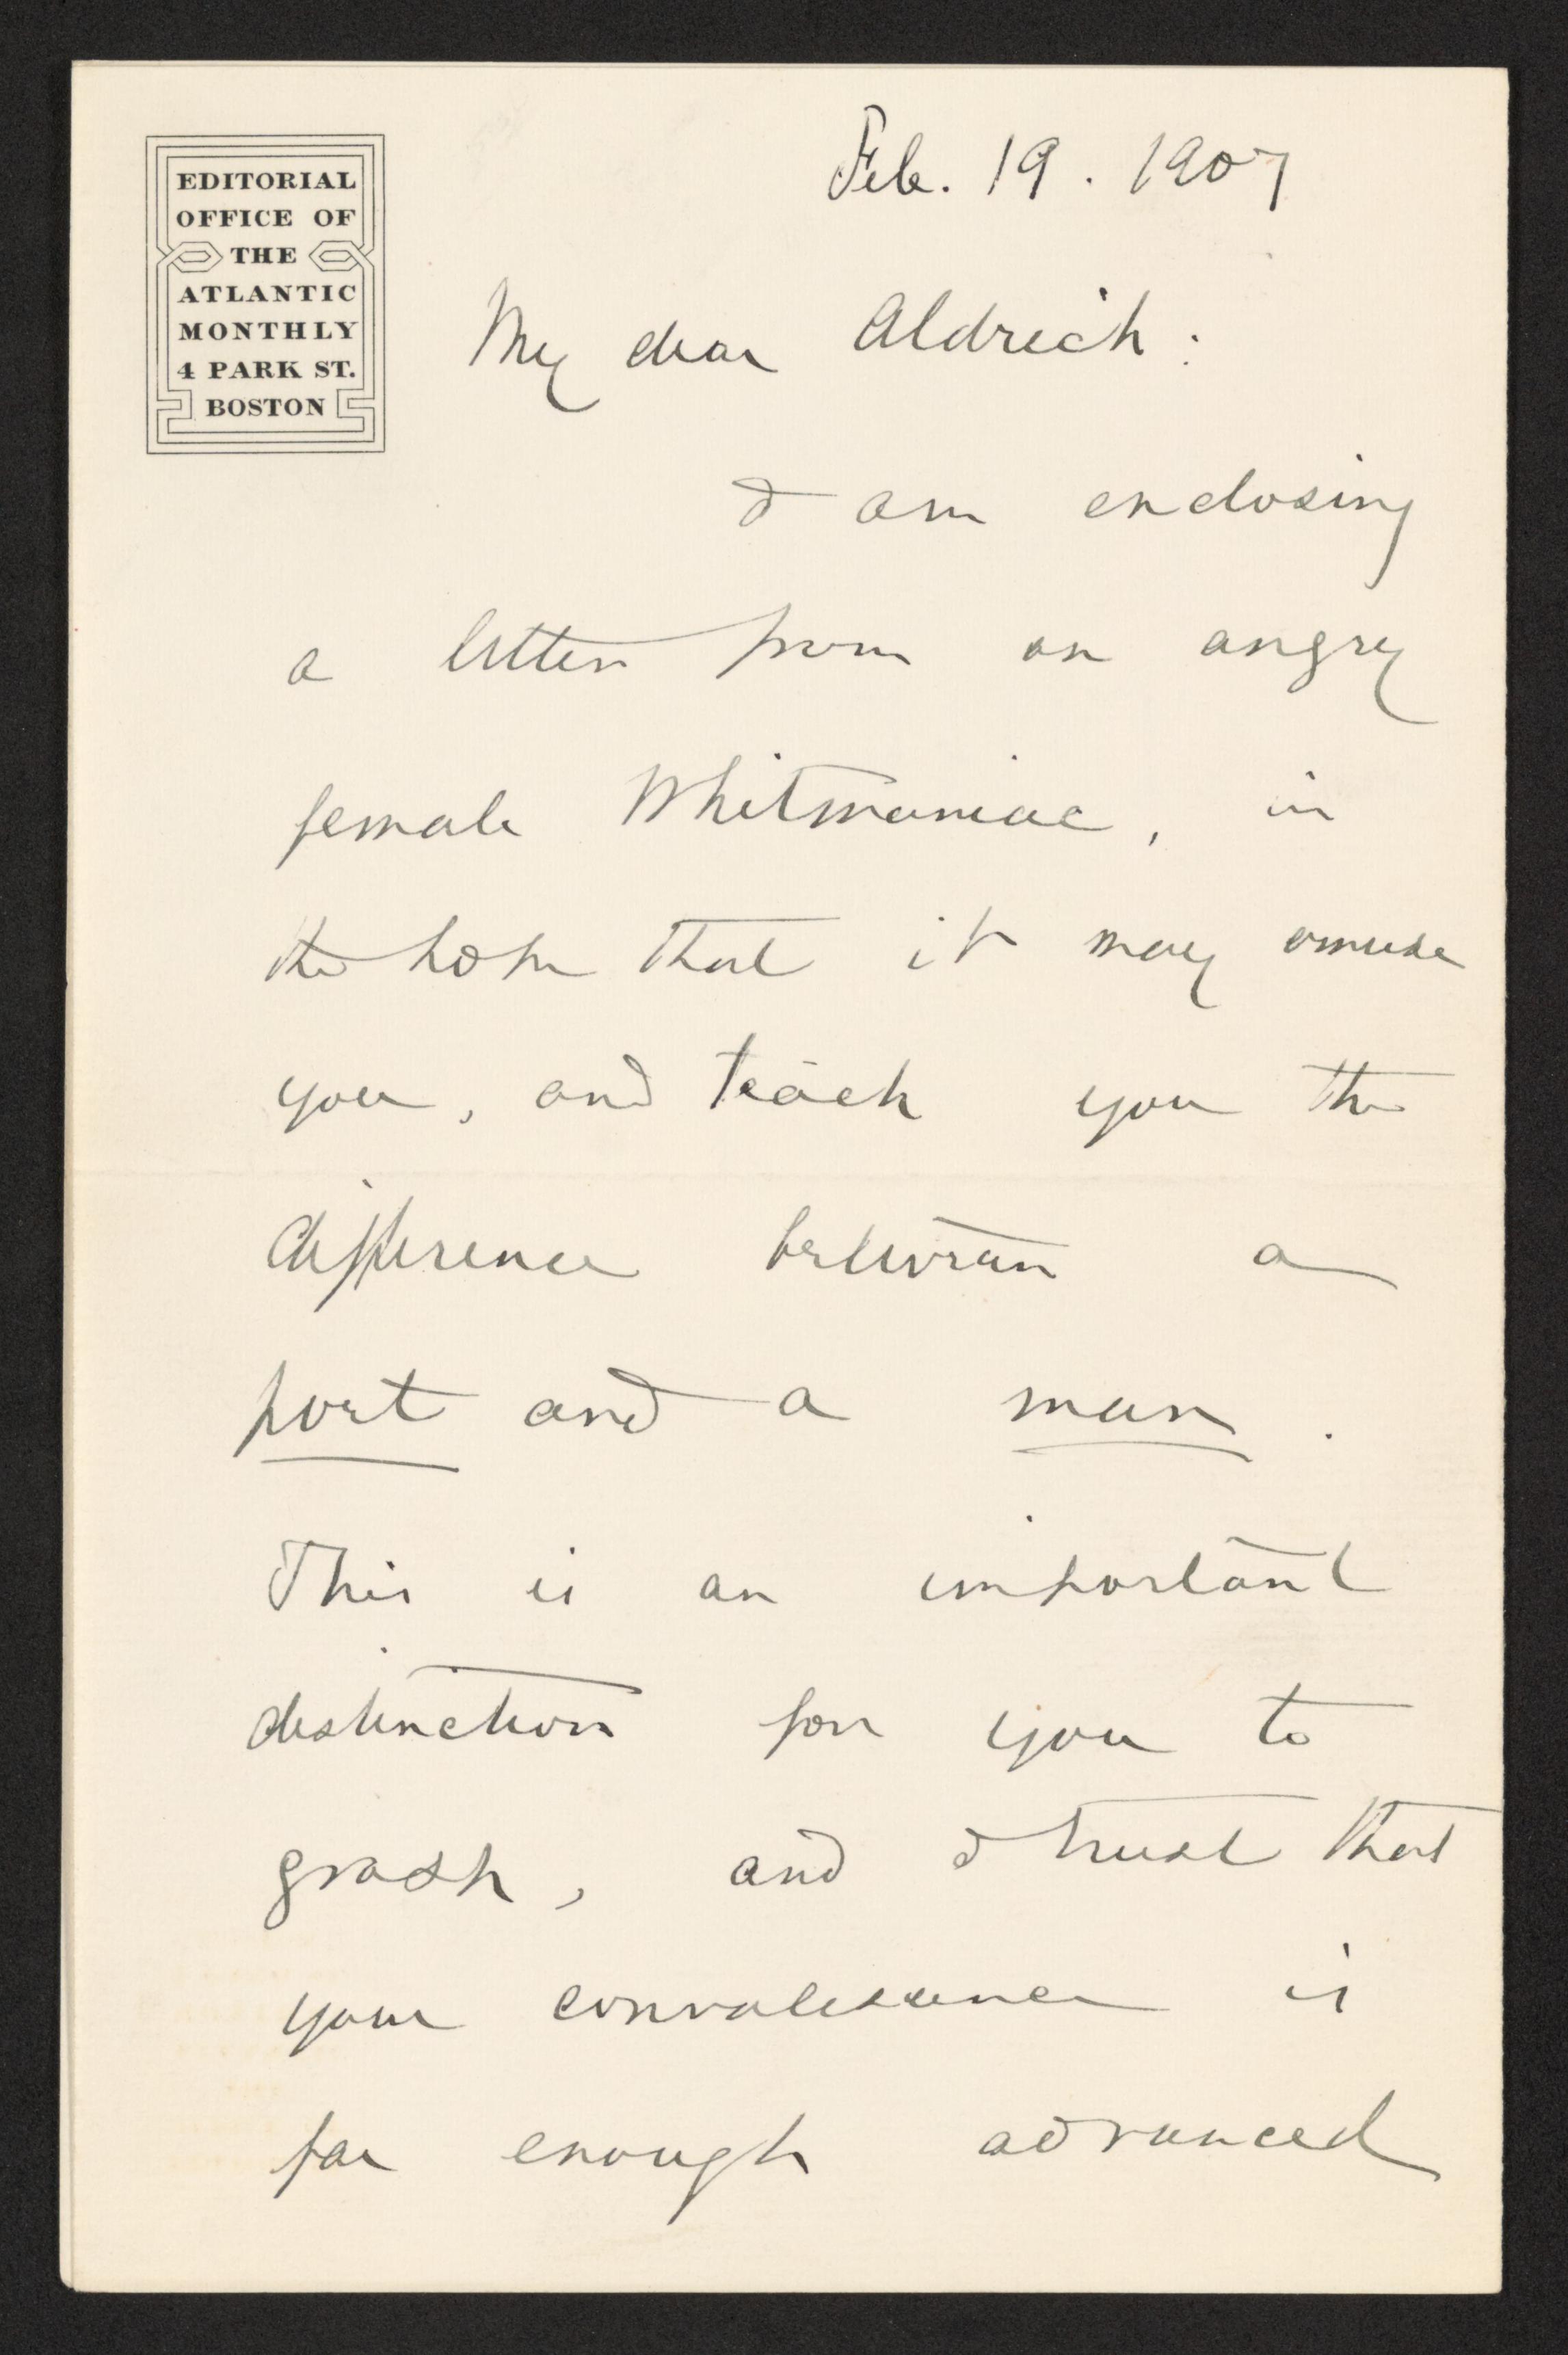 EDITORIAL
OFFICE OF
THE
ATLANTIC
MONTHLY
4 PARK ST.
BOSTON
Feb. 19. 1907
My dear Aldrich:
I am enclosing
a letter from an angry
female Whitmaniac, in
the hope that it may amuse
you, and teach you the
difference between a
poet and a man.
This is an important
distinction for you to
grasp, and I trust that
your convalescence is
far enough advanced